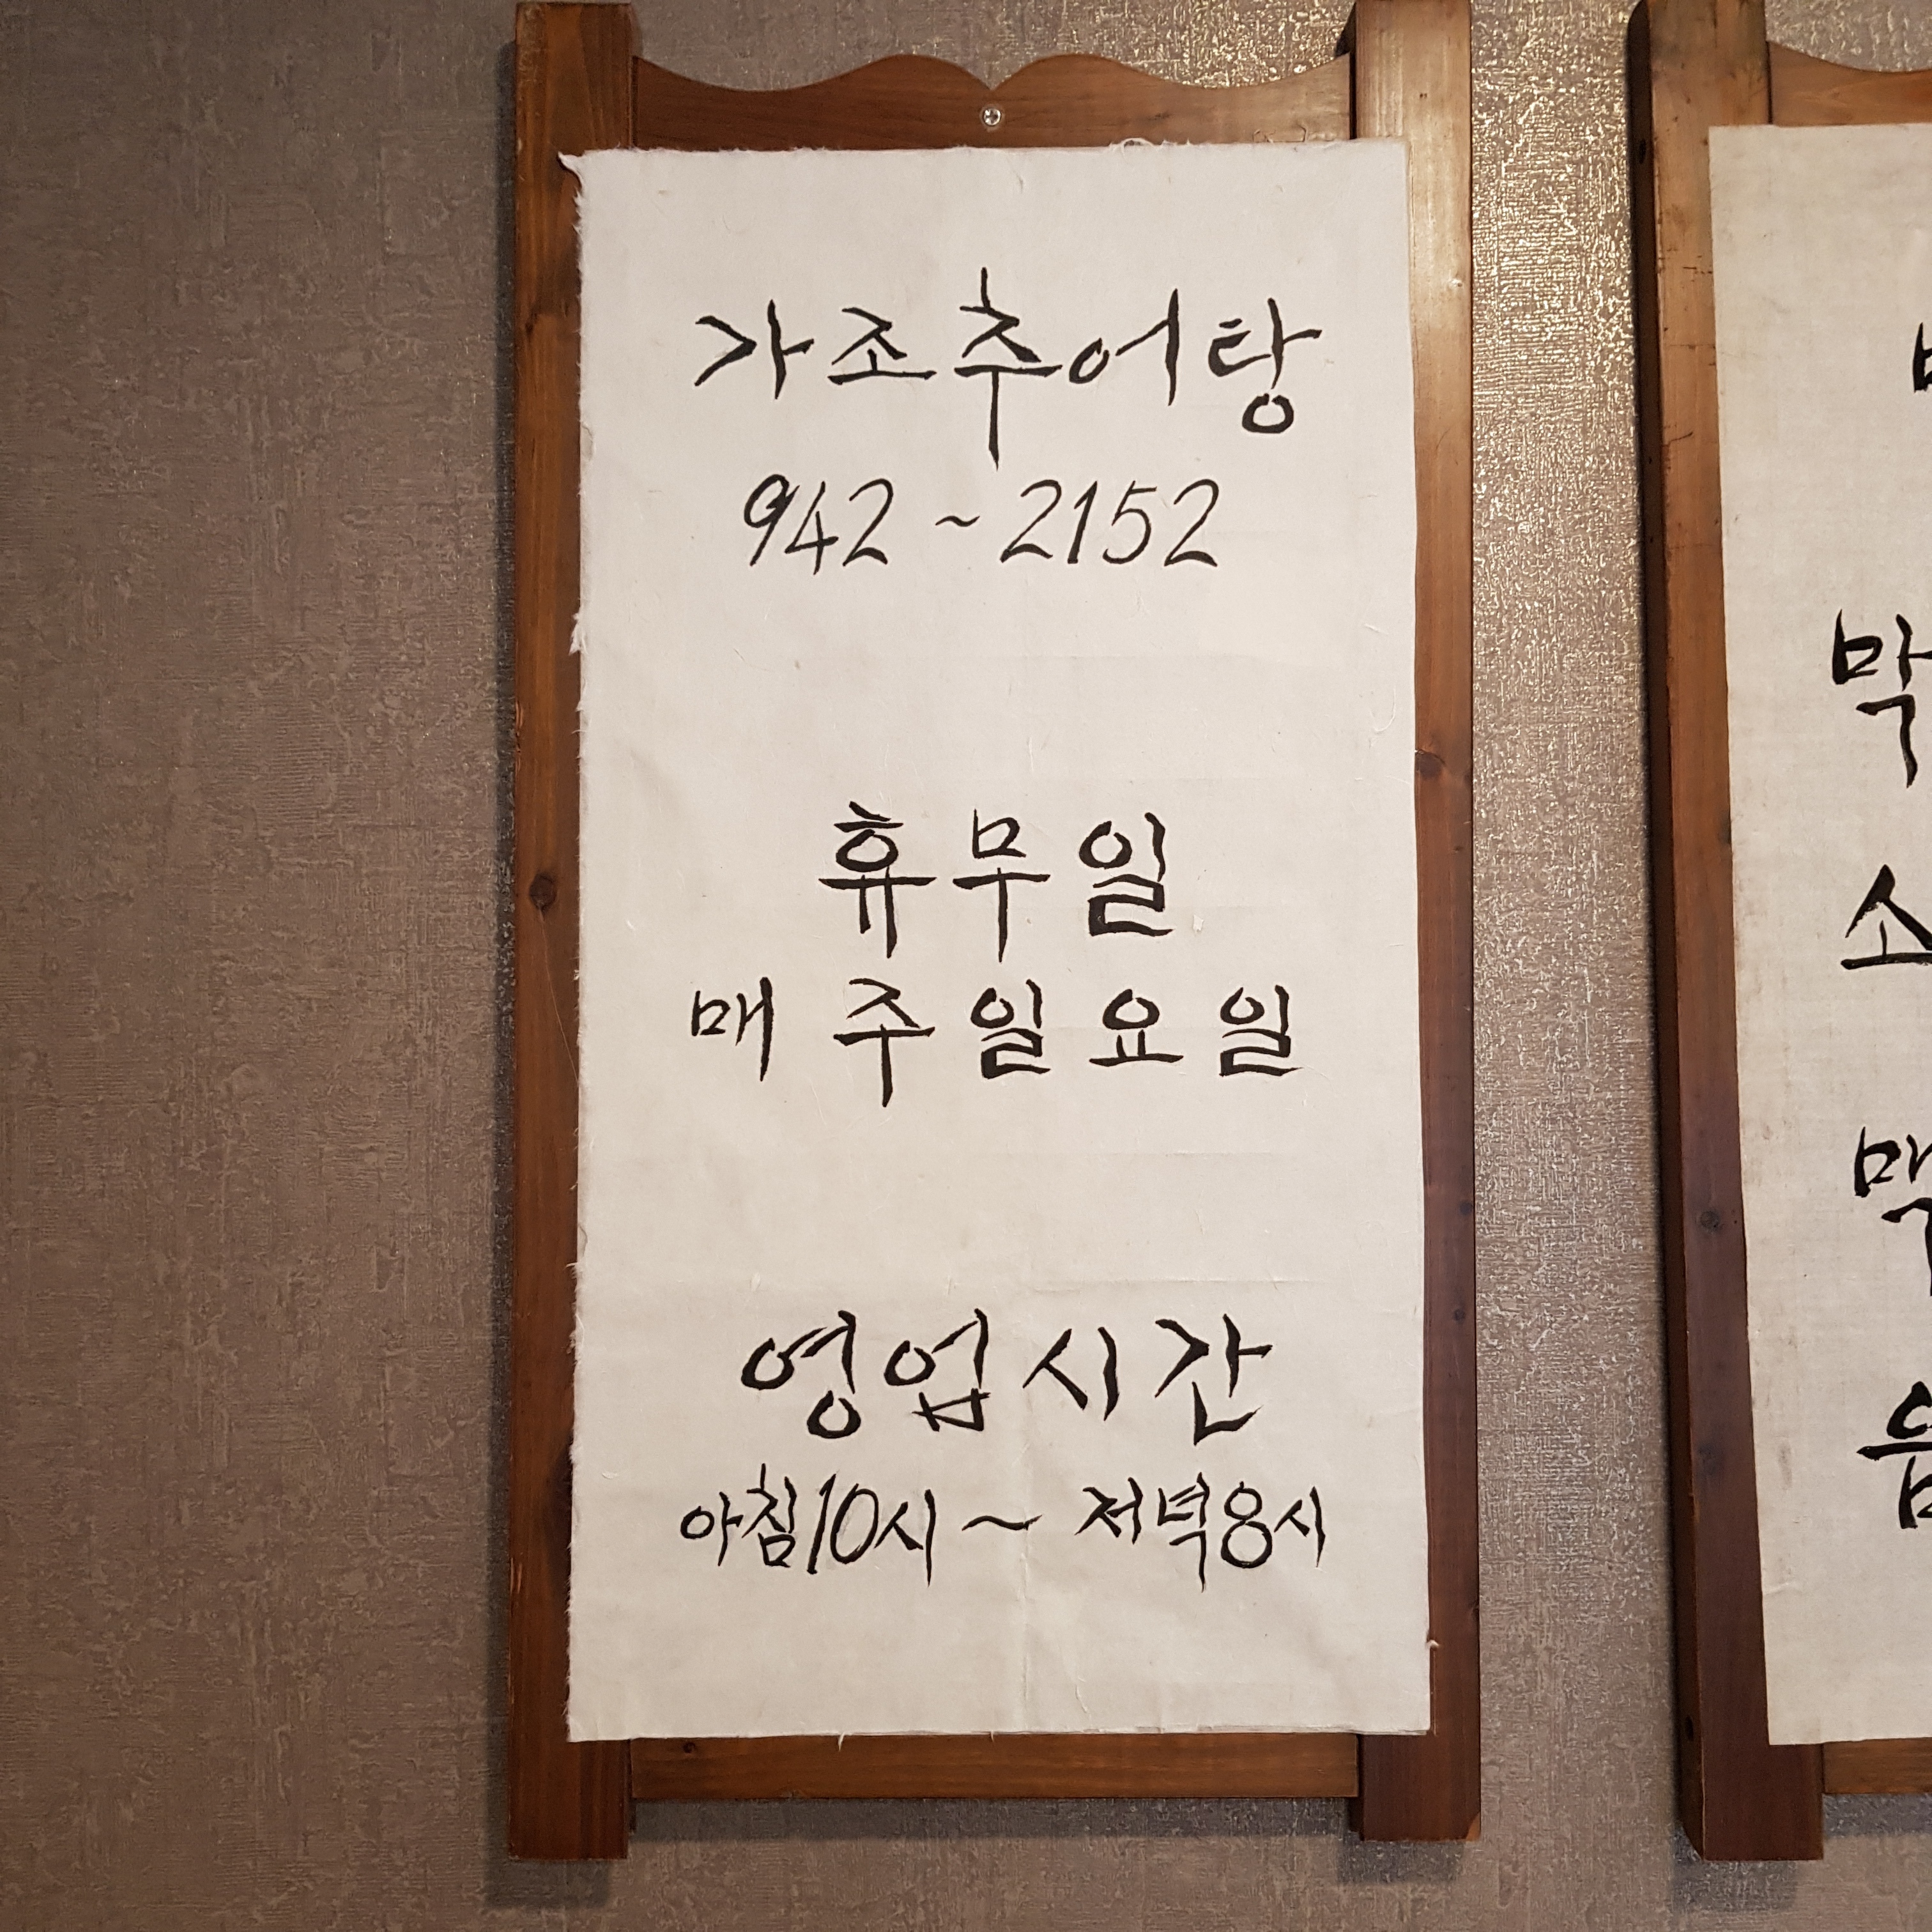 가조추어탕
942~2152
휴무일
매 주일요일
영업시간
아침10시 ~ 저녁8시
막
소